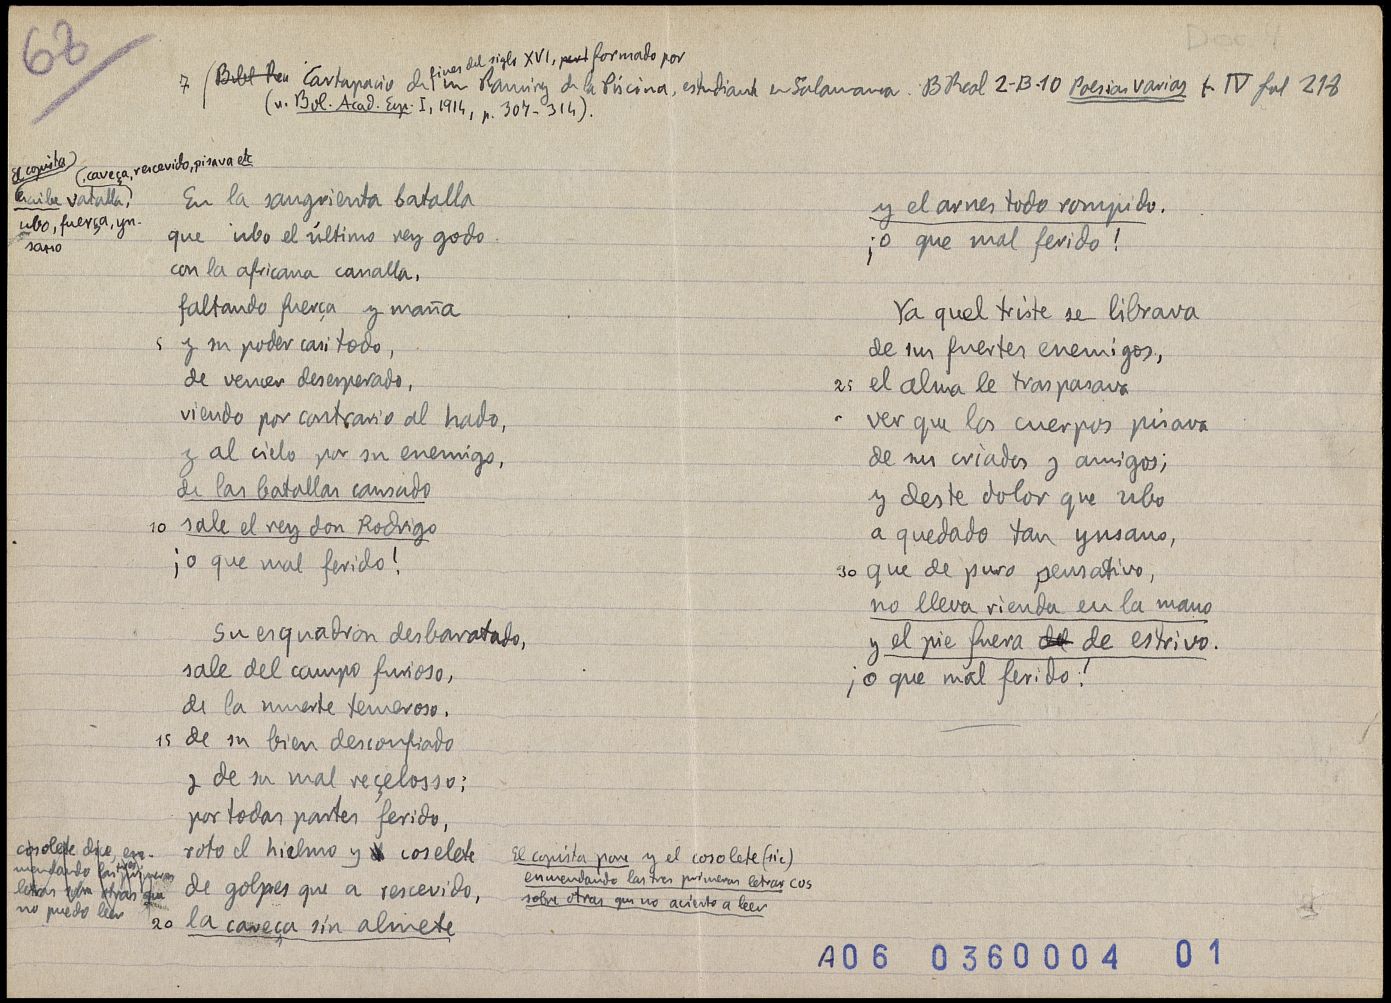 68
Doc 1
7 (Bibl Rea Cartapacio de fines del siglo XVI, formado por
un Ramirez de la Piscina, estudiante en Salamanca. B Real 2-B-10 Poesias varias t. IV fol 218
(v. Bol. Acad. Esp. I, 1914, p. 307-314).
El copista
escribe vatalla, (caveça, rescevido, pisava etc
ubo, fuerça, yn-
sano
En la sangrienta batalla
que ubo el último rey godo
con la africana canalla,
faltando fuerça y maña
5 y su poder casi todo,
de vencer desesperado,
viendo por contrario al hado,
y al cielo por su enemigo,
de las batallas cansado
10 sale el rey don Rodrigo
¡o que mal ferido!
Su esquadron desbaratado,
sale del campo furioso,
de la muerte temeroso,
15 de su bien desconfiado
y de su mal reçelosso;
por todas partes ferido,
roto el hielmo y coselete
de golpes que a rescevido,
20 la caveça sin almete
cosolete dice, en-
mendando las tres primeras
letras sobre otras que
no puedo leer
El copista pone y el cosolete (sic)
enmendando las tres primeras letras cos
sobre otras que no acierto a leer
y el arnes todo rompido.
¡o que mal ferido!
Ya quel triste se librava
de sus fuertes enemigos,
25 el alma le traspasava
ver que los cuerpos pisava
de sus criados y amigos;
y deste dolor que ubo
a quedado tan ynsano,
30 que de puro pensativo,
no lleva rienda en la mano
y el pie fuera de estrivo.
¡o que mal ferido!
A06 0360004 01